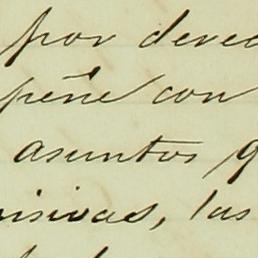 por derec
peñe con
asuntos q
isivas, las